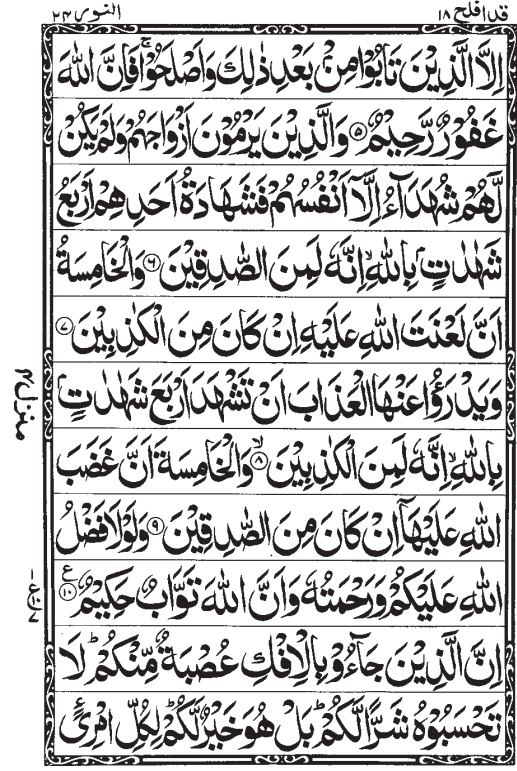 قد افلح ١٨ النور ٢٤
اِلَّا الَّذِيْنَ تَابُوْا مِنْۢ بَعْدِ ذٰلِكَ وَاَصْلَحُوْا ۚ فَاِنَّ اللّٰهَ
غَفُوْرٌ رَّحِيْمٌ ۝۵ وَالَّذِيْنَ يَرْمُوْنَ اَزْوَاجَهُمْ وَلَمْ يَكُنْ
لَّهُمْ شُهَدَآءُ اِلَّاۤ اَنْفُسُهُمْ فَشَهَادَةُ اَحَدِهِمْ اَرْبَعُ
شَهٰدٰتٍۭ بِاللّٰهِ ۙ اِنَّهٗ لَمِنَ الصّٰدِقِيْنَ ۝۶ وَالْخَامِسَةُ
اَنَّ لَعْنَتَ اللّٰهِ عَلَيْهِ اِنْ كَانَ مِنَ الْكٰذِبِيْنَ ۝۷
وَيَدْرَؤُا عَنْهَا الْعَذَابَ اَنْ تَشْهَدَ اَرْبَعَ شَهٰدٰتٍۭ
بِاللّٰهِ ۙ اِنَّهٗ لَمِنَ الْكٰذِبِيْنَ ۝۸ ۙ وَالْخَامِسَةَ اَنَّ غَضَبَ
اللّٰهِ عَلَيْهَاۤ اِنْ كَانَ مِنَ الصّٰدِقِيْنَ ۝۹ وَلَوْلَا فَضْلُ
اللّٰهِ عَلَيْكُمْ وَرَحْمَتُهٗ وَاَنَّ اللّٰهَ تَوَّابٌ حَكِيْمٌ ۝۱۰ ع
اِنَّ الَّذِيْنَ جَآءُوْ بِالْاِفْكِ عُصْبَةٌ مِّنْكُمْ ؕ لَا
تَحْسَبُوْهُ شَرًّا لَّكُمْ ؕ بَلْ هُوَ خَيْرٌ لَّكُمْ ؕ لِكُلِّ امْرِئٍ
منزل ۴